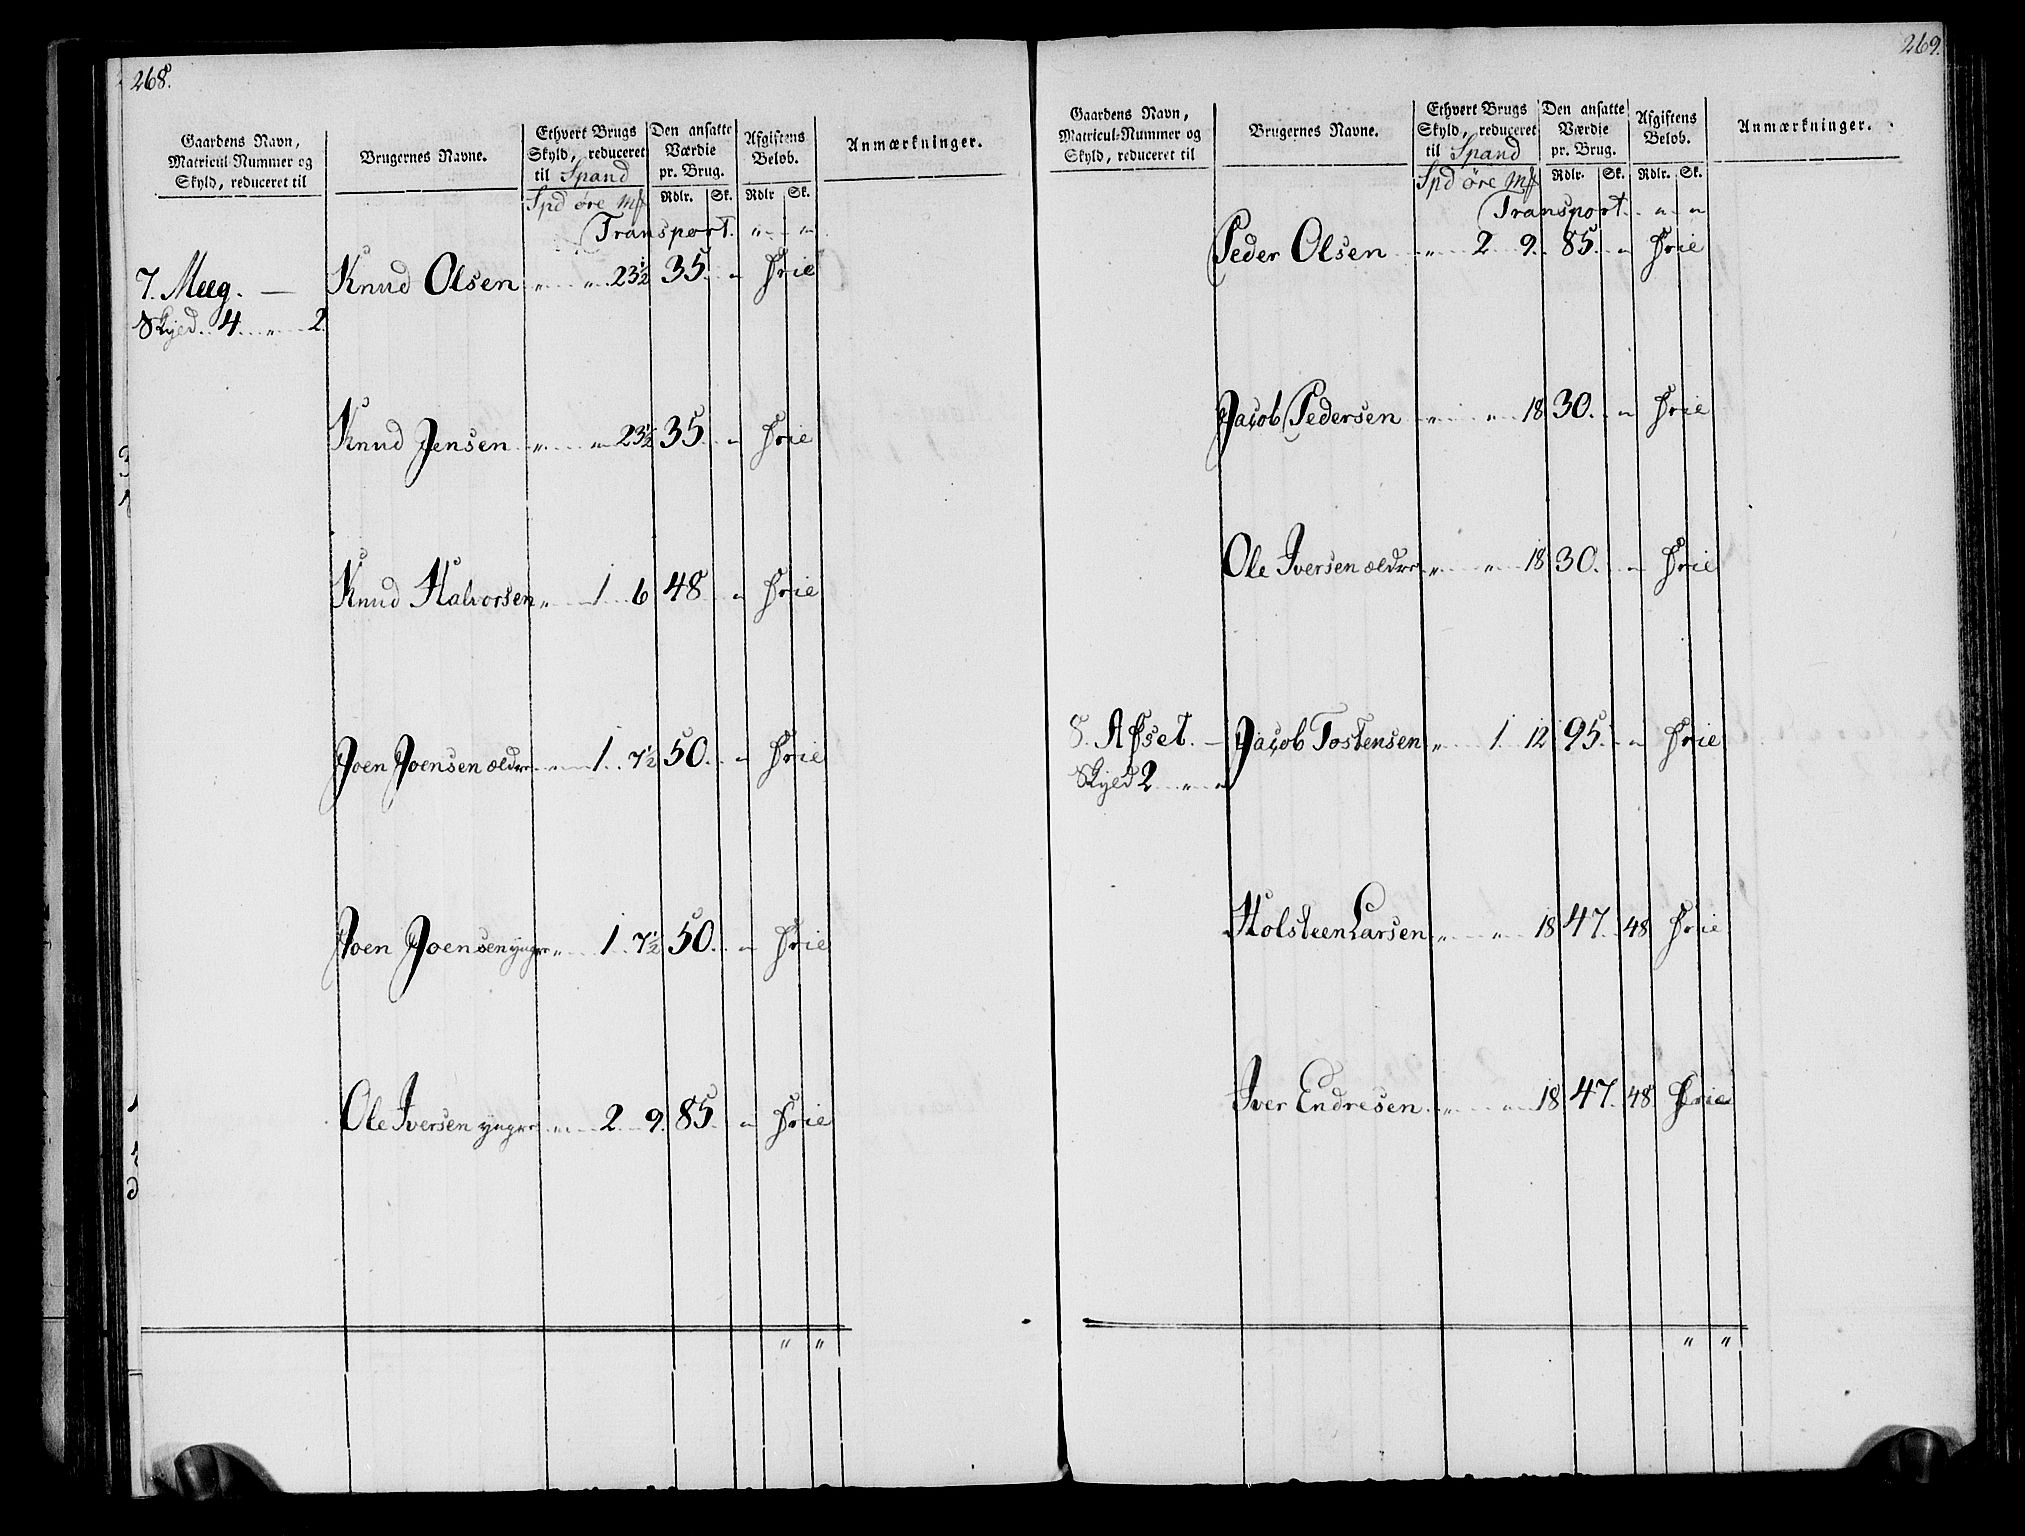 268.
Gaardens Navn, Matricul-Nummer og Skyld, reduceret til
Brugernes Navne.
Ethvert Brugs Skyld, reduceret til Spand
Den ansatte Værdie pr. Brug.
Afgiftens Belob.
Anmærkninger.
Spd øre Mk Rdlr. Sk. Rdlr Sk.
Transport. " "
7. Meeg. — Knud Olsen " " 23½ 35. " Frie
Skyld. 4. " 2.
Knud Jensen " " 23½ 35. " Frie
Knud Halvorsen " 1 6 48 " Frie
Joen Joensen ældre " 1. 7½ 50. " Frie
Joen Joensen yngre " 1. 7½ 50. " Frie
Ole Iversen yngre " 2. 9. 85. " Frie
" "
269.
Gaardens Navn, Matricul-Nummer og Skyld, reduceret til
Brugernes Navne.
Ethvert Brugs Skyld, reduceret til Spand
Den ansatte Værdie pr. Brug.
Afgiftens Belob.
Anmærkninger.
Spd øre Mk Rdlr. Sk. Rdlr. Sk.
Transport. " "
Peder Olsen " 2 9. 85. " Frie
Jacob Pedersen " " 18 30. " Frie
Ole Iversen ældre " " 18 30. " Frie
8. Afset. — Jacob Tostensen " 1. 12 95. " Frie
Skyld 2 " "
Holsteen Larsen " " 18 47. 48 Frie
Iver Endresen " " 18 47. 48 Frie
" "